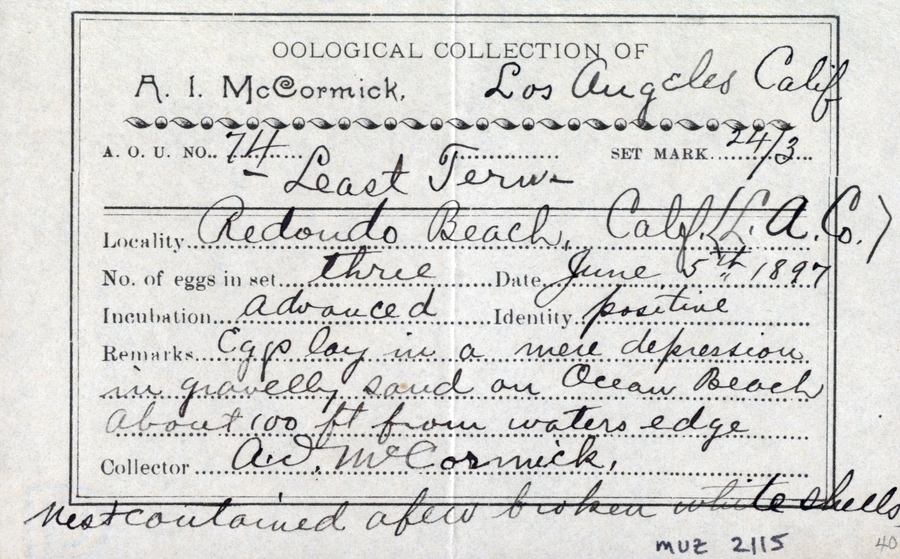 OOLOGICAL COLLECTION OF
A. I. McCormick, Los Angeles Calif
A. O. U. NO. 74 SET MARK 24/3
- Least Tern -
Locality Redondo Beach, Calif. (L. A. Co.)
No. of eggs in set three Date June 5th 1897
Incubation advanced Identity positive
Remarks Eggs lay in a mere depression
in gravelly sand on Ocean Beach
about 100 ft from waters edge
Collector A. I. McCormick.
Nest contained a few broken white shells
muz 2115
40